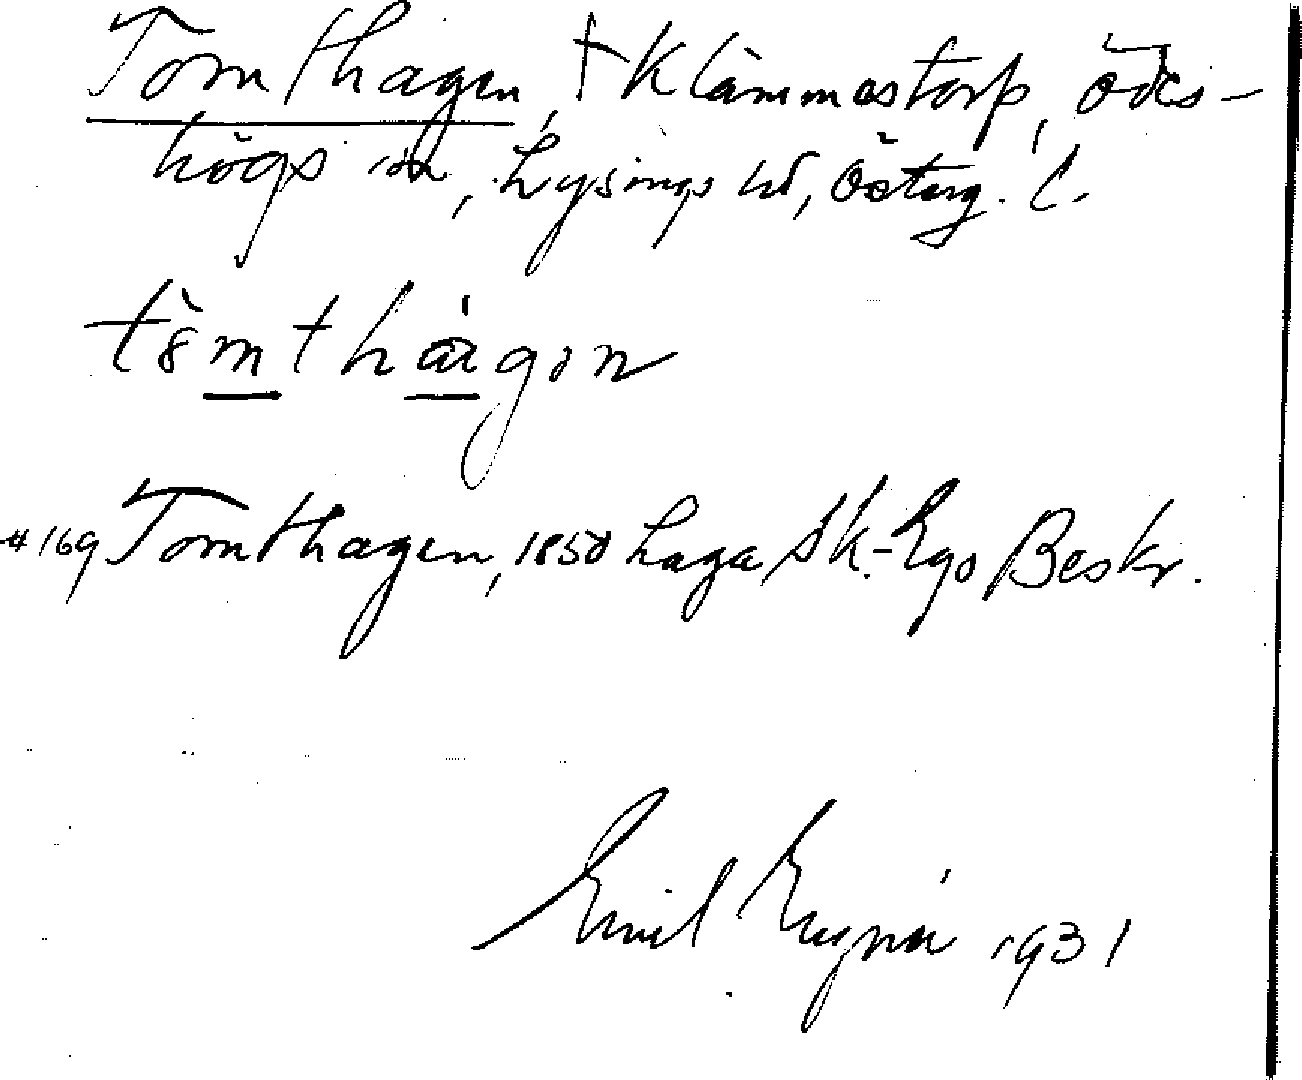 Tomthagen, † Klämmestorp, Ödes-
högs sn, Lysings hd, Österg. l.
tômthàgən
#169 Tomthagen, 1850 Laga Sk.-Ego Beskr.
Emil 1931